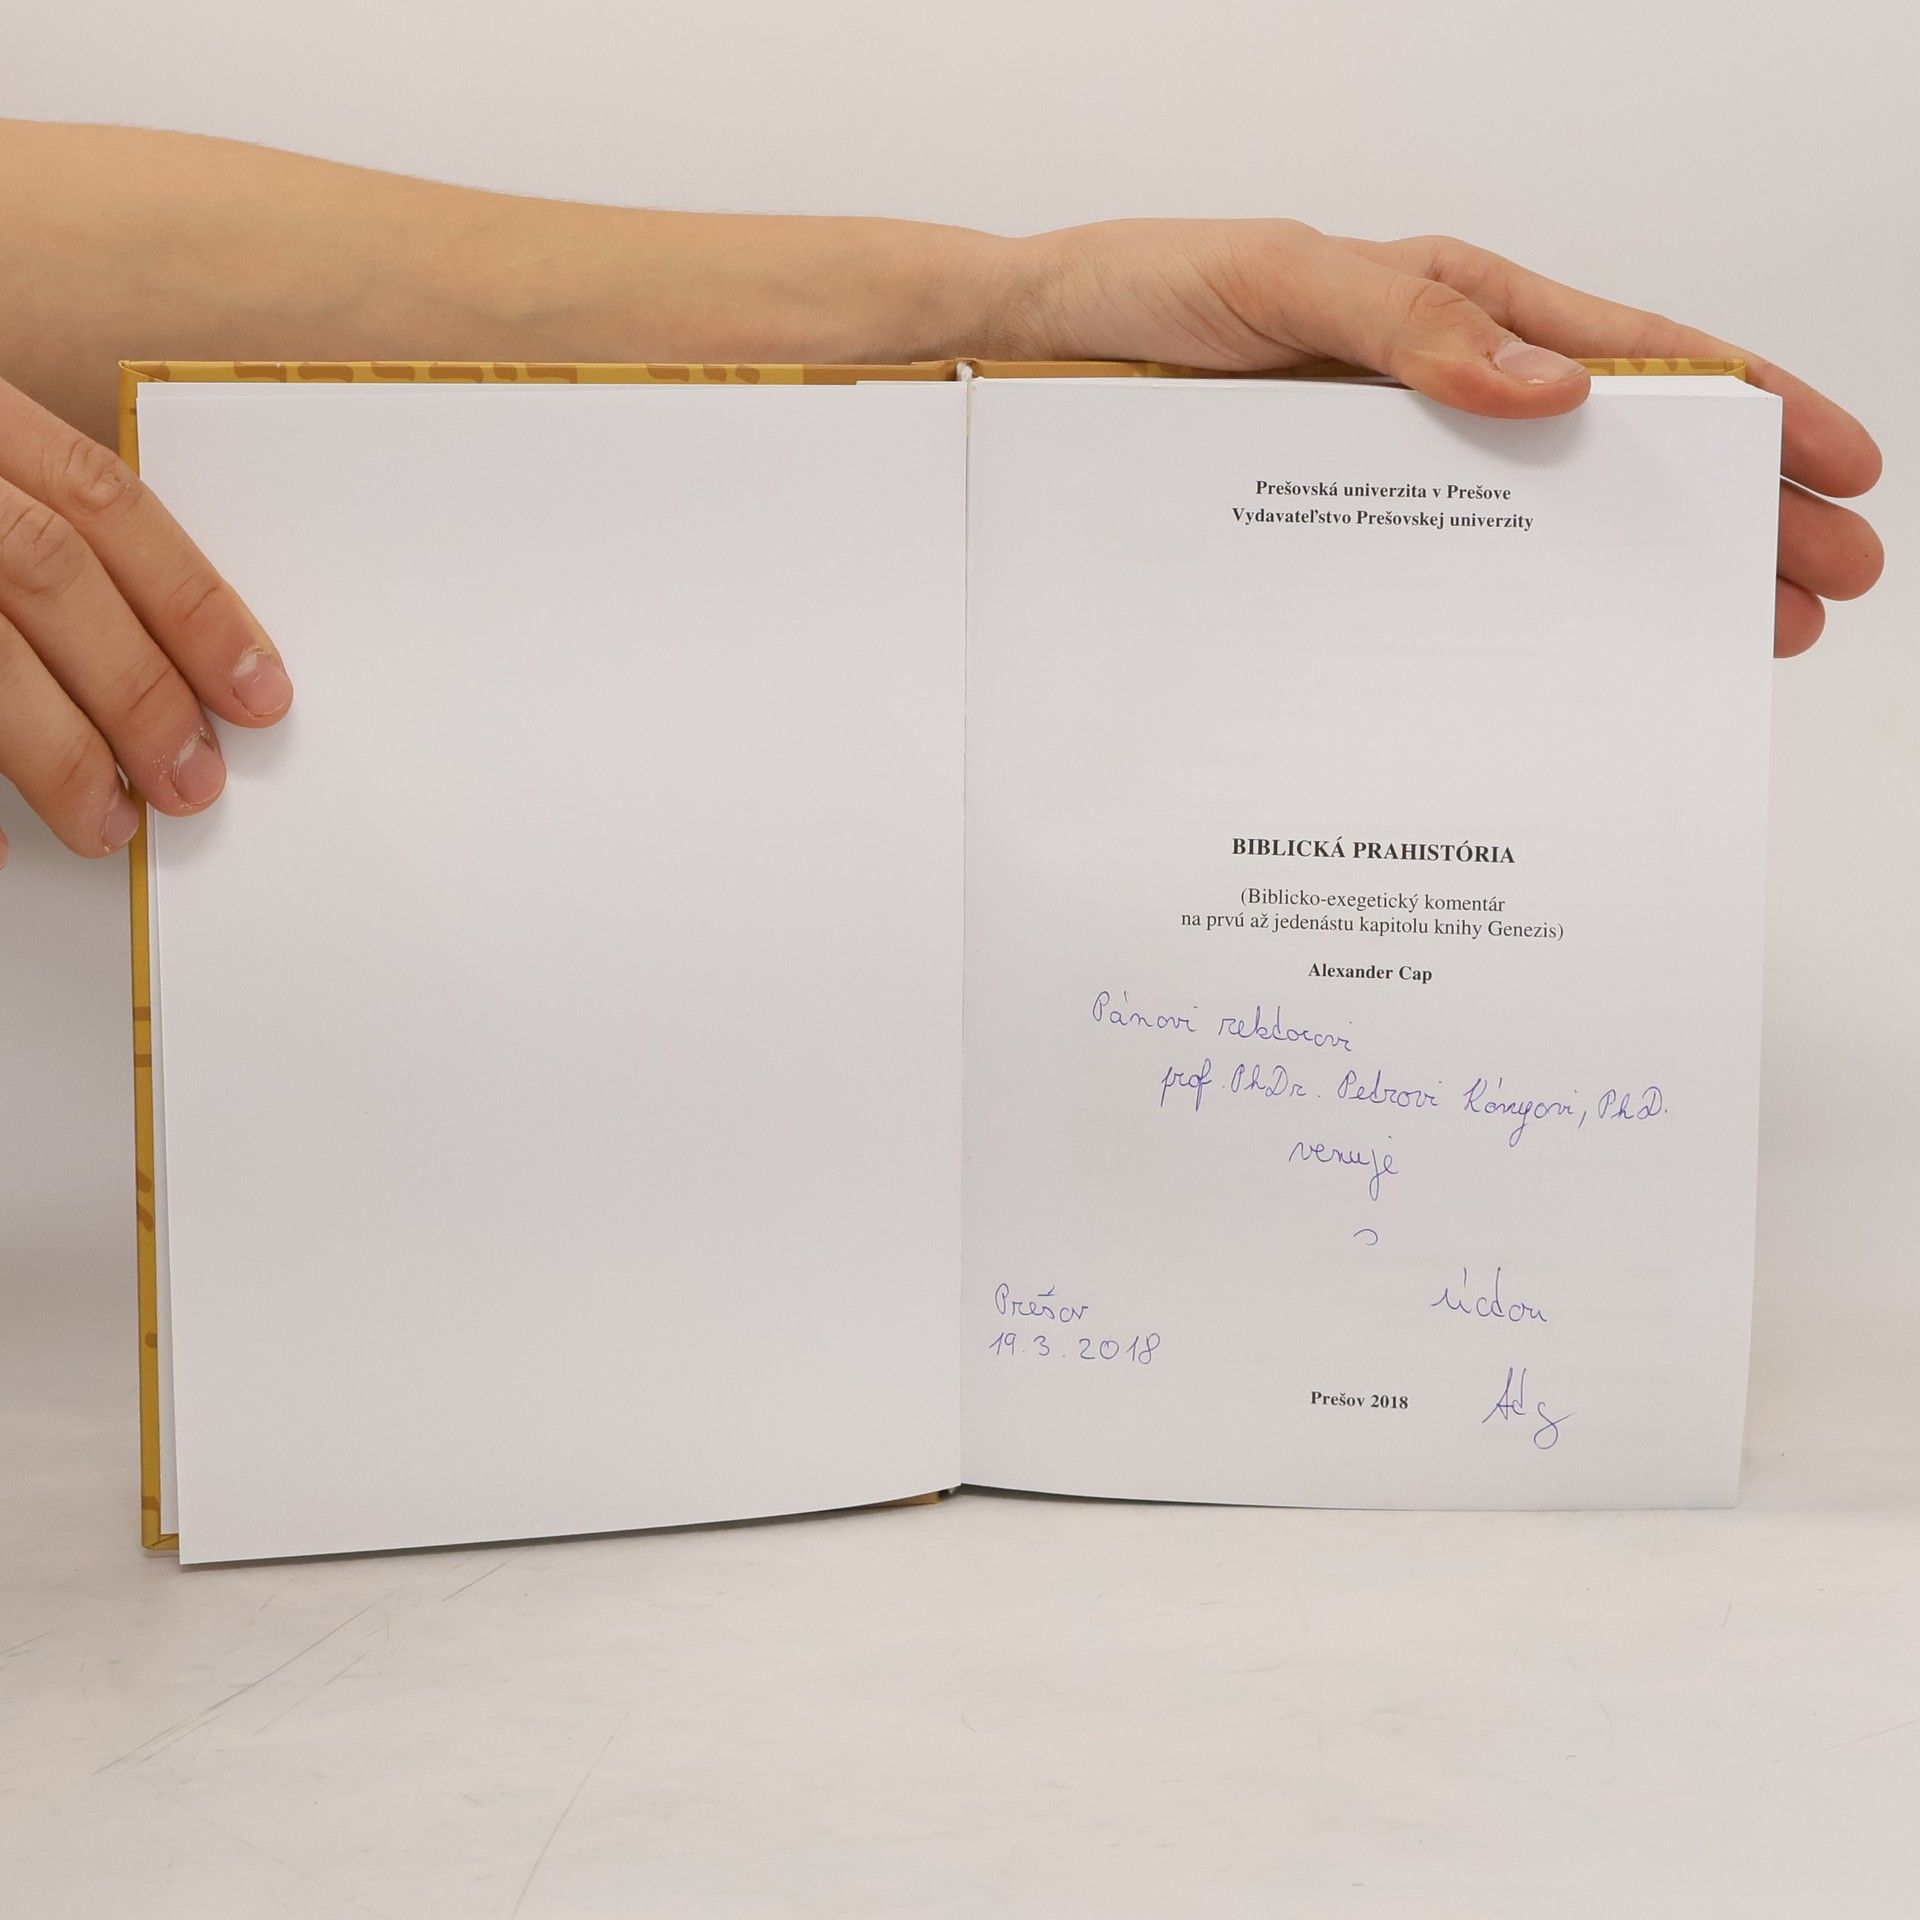 Prešovská univerzita v Prešove
Vydavateľstvo Prešovskej univerzity
BIBLICKÁ PRAHISTÓRIA
(Biblicko-exegetický komentár
na prvú až jedenástu kapitolu knihy Genezis)
Alexander Cap
Pánovi rektorovi
prof. PhDr. Petrovi Kónyovi, PhD.
venuje
s
úctou
Prešov
19.3.2018
Prešov 2018